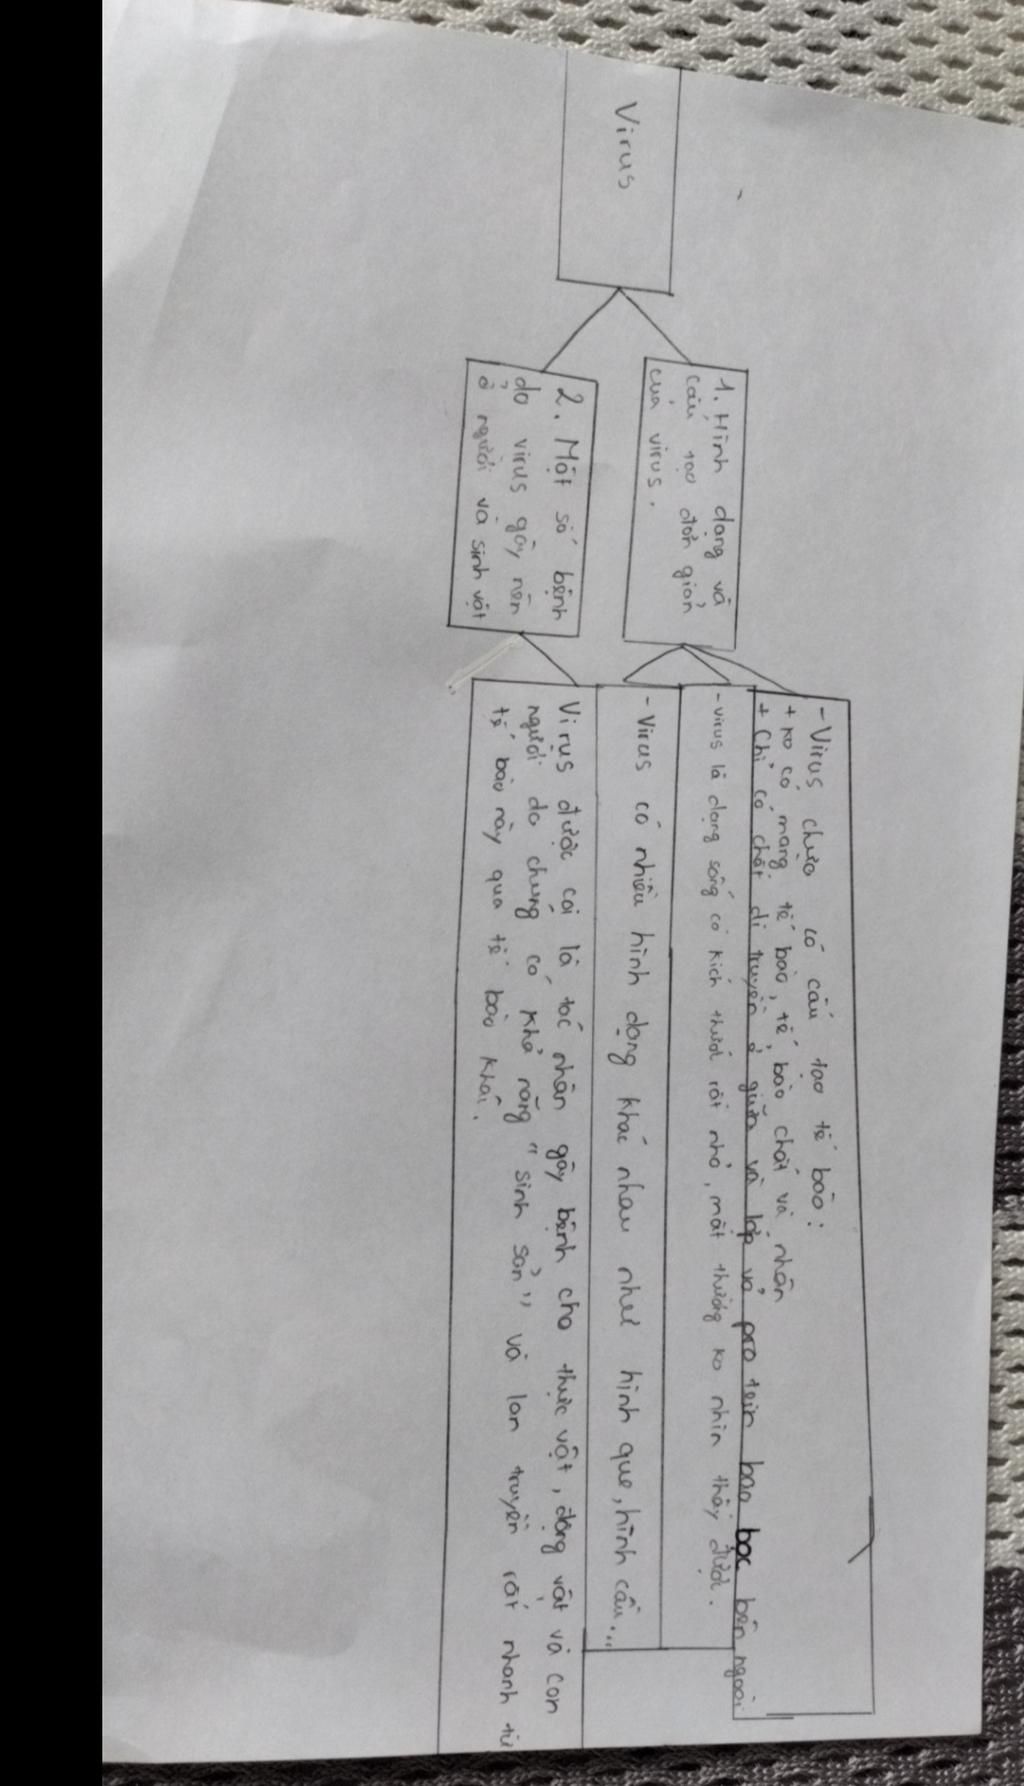 Virus
1. Hình dạng và
cấu tạo đơn giản
của virus.
- Virus chưa có cấu tạo tế bào:
+ ko có màng tế bào, tế bào chất và nhân
+ Chỉ có chất di truyền ở giữa và lớp vỏ protein bao bọc bên ngoài
- virus là dạng sống có kích thước rất nhỏ, mắt thường ko nhìn thấy được.
- Virus có nhiều hình dạng khác nhau như hình que, hình cầu...
2. Một số bệnh
do virus gây nên
ở người và sinh vật
Virus được coi là tác nhân gây bệnh cho thực vật, động vật và con
người do chúng có khả năng "sinh sản" và lan truyền rất nhanh từ
tế bào này qua tế bào khác.